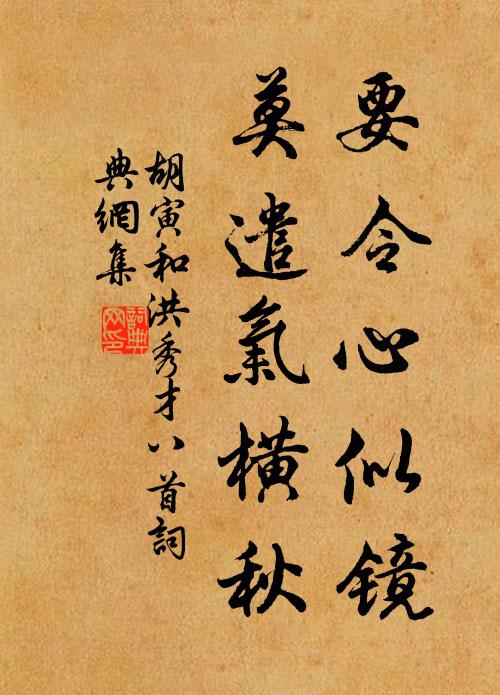 要令心似镜
莫遣氣橫秋
胡寅和洪秀才八首詞
典網集
詞典網印